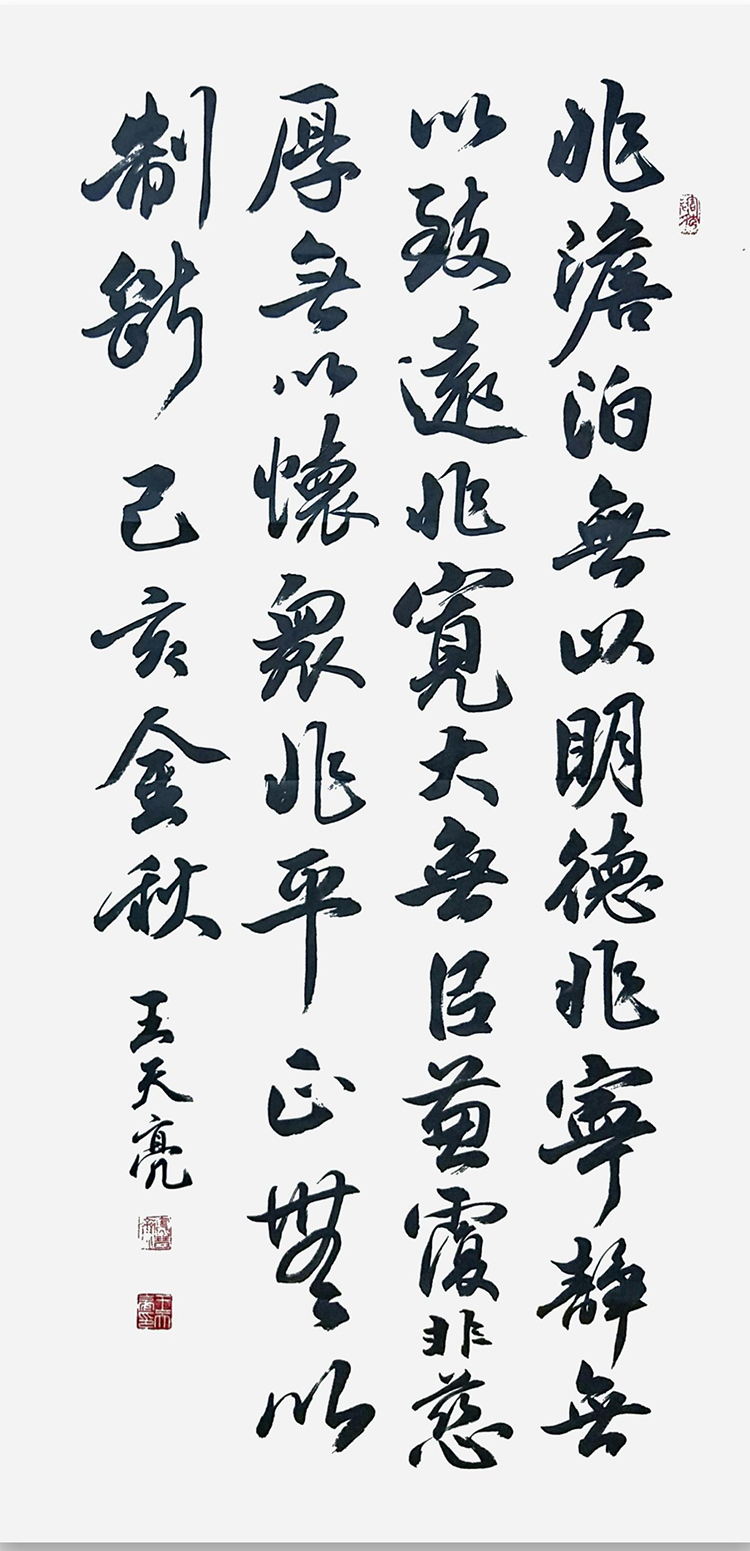 非澹泊無以明德非寧靜無
以致遠非寬大無㠯蓋覆非慈
厚無以懷衆非平正無以
制斷 己亥金秋 王天亮